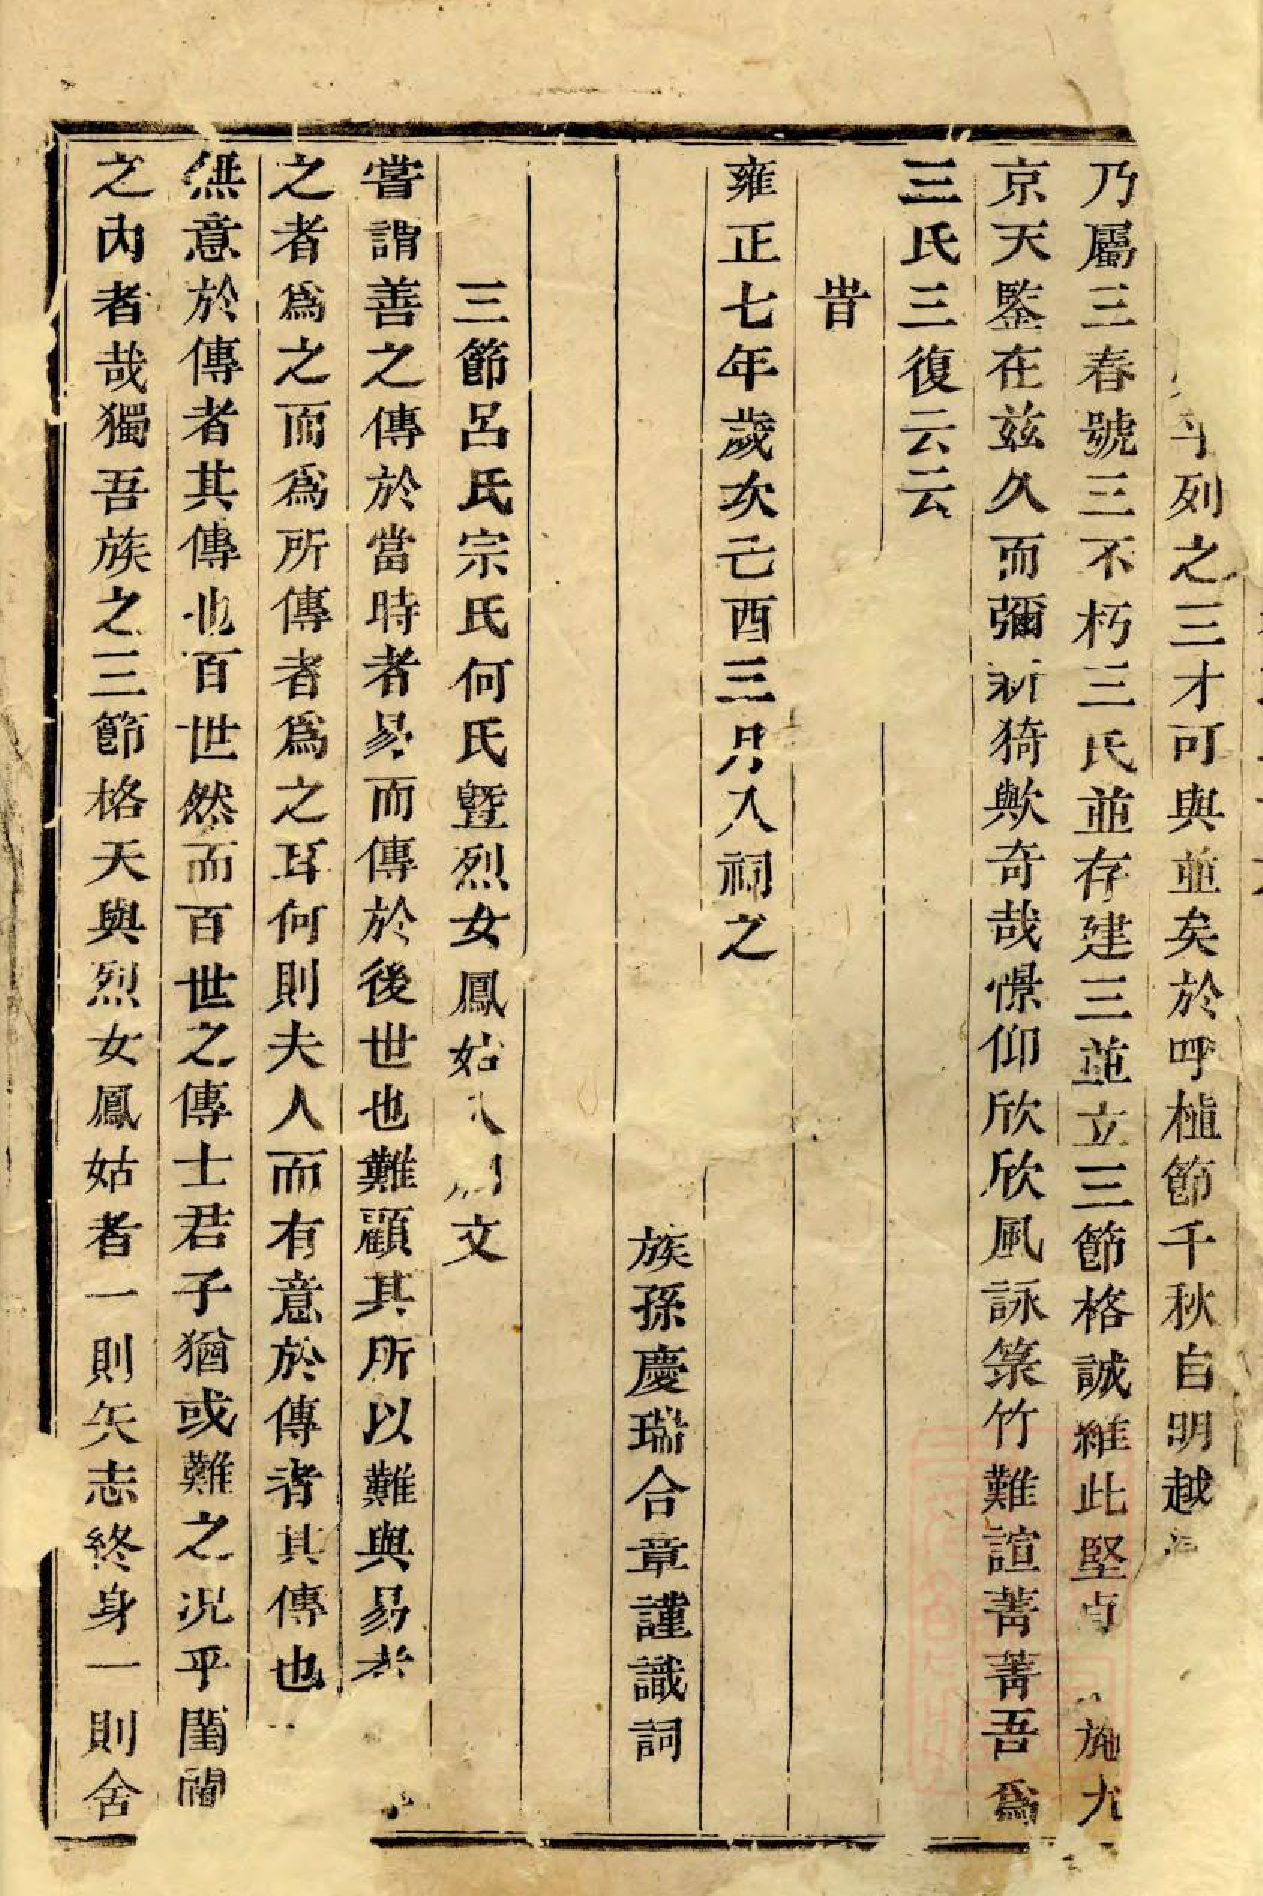 列之三才可與並矣於呼植節千秋自明越
乃屬三春號三不朽三氏並存建三並立三節格誠維此堅貞施九
京天鑒在兹久而彌新猗歟奇哉憬仰欣欣風詠菉竹難諠菁菁吾為
三氏三復云云
旹
雍正七年歲次己酉三月入祠之
族孫慶瑞合章謹識詞
三節呂氏宗氏何氏暨烈女鳳姑文
嘗謂善之傳於當時者易而傳於後世也難顧其所以難與易者
之者爲之而爲所傳者爲之耳何則夫人而有意於傳者其傳也
無意於傳者其傳也百世然而百世之傳士君子猶或難之况乎閨閣
之內者哉獨吾族之三節格天與烈女鳳姑者一則矢志終身一則舍